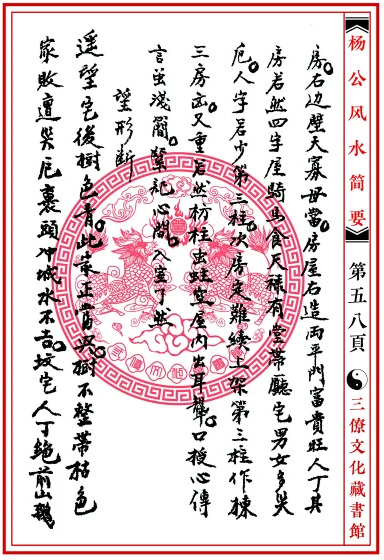 杨公风水简要
第五八頁
三僚文化藏書館
房右边壁天寡母當房屋右造両平門富貴旺人丁其
房若然四字屋騎馬食天祿有堂帶廳宅男女多灾
厄人字若少第三柱次房定難續上架第三柱作棟
三房凶又重若然枋柱虫蛀空屋内出耳聾口授心傳
言虽淺簡緊記心間入室了然
望形断
遥望宅後樹色青此家正富樹不整帶枯色
家敗遭灾厄裹頭冲城水不吉坟宅人丁絶前山鵝